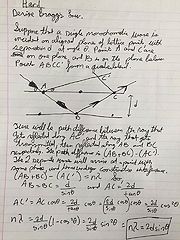 Hard
Derive Bragg's Law.
Suppose that a single monochromatic wave is
incident on aligned planes of lattice points with
separation d at angle θ. Points A and C are
on one plane, and B is on the plane below.
Points ABCC' form a quadrilateral.
A
B
C
C'
d
There will be path difference between the ray that
gets reflected along AC' and the ray that gets
transmitted, then reflected along AB and BC
respectively. The path difference is (AB+BC)-(AC').
The 2 separate waves will arrive at a point with
same phase, and hence undergo constructive interference.
(AB+BC)-(AC') = nλ
AB=BC= d/sinθ and AC= 2d/tanθ
AC' = AC cosθ = 2d/tanθ cosθ = (2d/sinθ cosθ) cosθ = 2d/sinθ cos²θ
nλ = 2d/sinθ (1-cos²θ) = 2d/sinθ sin²θ
nλ=2d sinθ